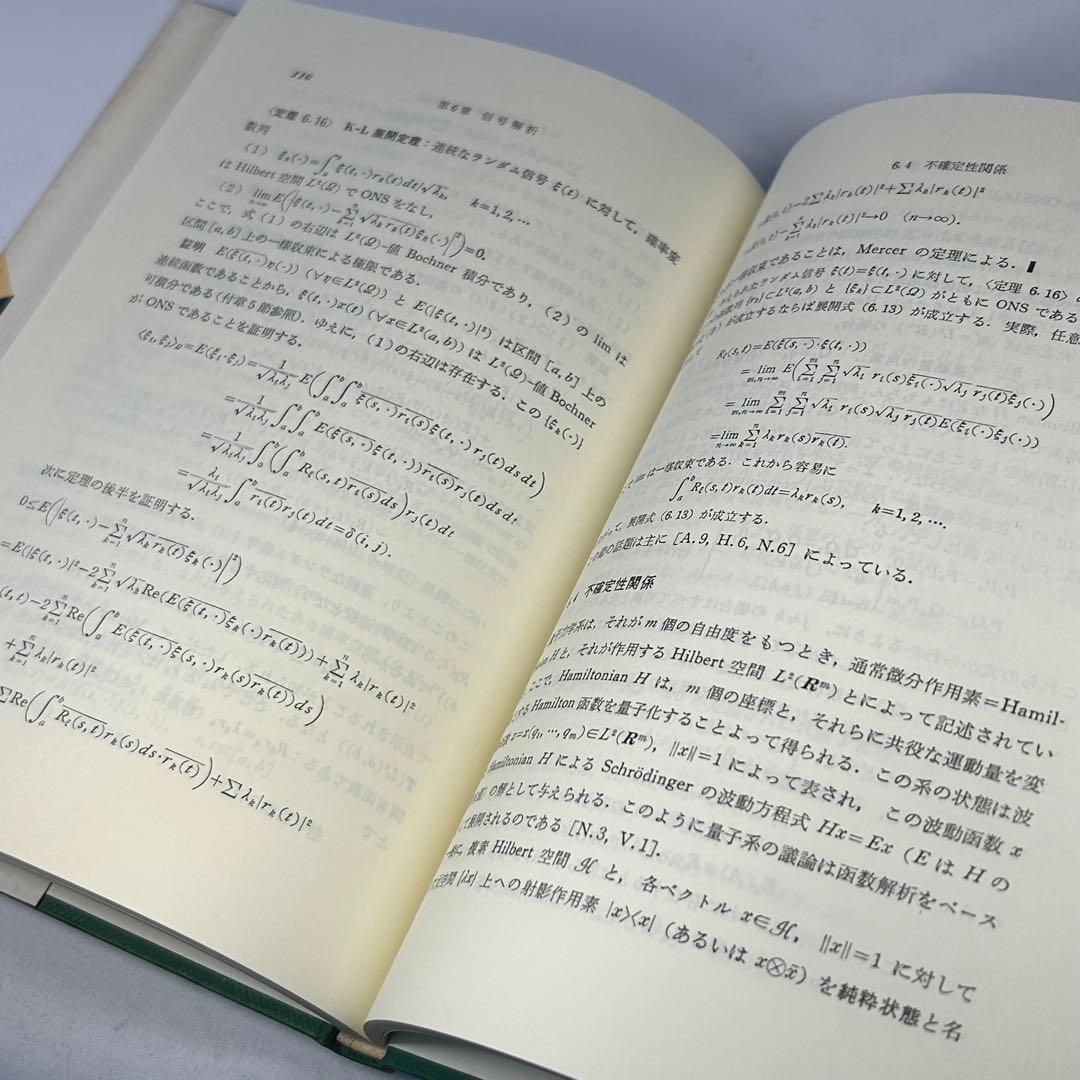 116
第6章 信号解析
〈定理 6.16〉 K-L 展開定理：連続なランダム信号 ξ(t) に対して，確率変
数列
(1) ξₖ(·)=∫ₐᵇξ(t,·)rₖ(t)dt/√λₖ, k=1,2,…
は Hilbert 空間 L²(Ω) で ONS をなし，
(2) lim_{n→∞}E(|ξ(t,·)−∑_{k=1}^{n}√λₖ \overline{rₖ(t)}ξₖ(·)|²)=0.
ここで，式 (1) の右辺は L²(Ω)-値 Bochner 積分であり，(2) の lim は
区間 [a,b] 上の一様収束による極限である．
証明 E(ξ(t,·)η(·)) (∀η∈L²(Ω)) と E(|ξ(t,·)|²) は区間 [a,b] 上の
連続函数であることから，ξ(t,·)x(t) (∀x∈L²(a,b)) は L²(Ω)-値 Bochner
可積分である（付章5節参照）．ゆえに，(1) の右辺は存在する．この {ξₖ(·)}
が ONS であることを証明する．
⟨ξᵢ,ξⱼ⟩_Ω=E(\overline{ξᵢ}·ξⱼ)=1/√λᵢλⱼ E(∫ₐᵇ∫ₐᵇ\overline{ξ(s,·)rᵢ(s)}ξ(t,·)rⱼ(t)dsdt)
=1/√λᵢλⱼ ∫ₐᵇ∫ₐᵇE(\overline{ξ(s,·)}ξ(t,·))\overline{rᵢ(s)}rⱼ(t)dsdt
=1/√λᵢλⱼ ∫ₐᵇ(∫ₐᵇR_ξ(s,t)\overline{rᵢ(s)}ds)rⱼ(t)dt
=λᵢ/√λᵢλⱼ ∫ₐᵇ\overline{rᵢ(t)}rⱼ(t)dt=δ(i,j).
次に定理の後半を証明する．
0≤E(|ξ(t,·)−∑_{k=1}^{n}√λₖ \overline{rₖ(t)}ξₖ(·)|²)
=E(|ξ(t,·)|²−2∑_{k=1}^{n}√λₖRe(E(\overline{ξ(t,·)}ξₖ(·)\overline{rₖ(t)}))+∑_{k=1}^{n}λₖ|rₖ(t)|²
(t,t)−2∑_{k=1}^{n}Re(∫ₐᵇE(\overline{ξ(t,·)}ξ(s,·)rₖ(s)\overline{rₖ(t)})ds)
+∑_{k=1}^{n}λₖ|rₖ(t)|²
∑Re(∫ₐᵇ\overline{R_ξ(s,t)}rₖ(s)ds·\overline{rₖ(t)})+∑λₖ|rₖ(t)|²
6.4 不確定性関係
(t,t)−2∑λₖ|rₖ(t)|²+∑λₖ|rₖ(t)|²
(t,t)−∑_{k=1}^{n}λₖ|rₖ(t)|²→0 (n→∞).
収束であることは，Mercer の定理による．
られたランダム信号 ξ(t)=ξ(t,·) に対して，〈定理 6.16〉 の
{rₖ}⊂L²(a,b) と {ξₖ}⊂L²(Ω) がともに ONS である
) が成立するならば展開式 (6.13) が成立する．実際，任意
R_ξ(s,t)=E(\overline{ξ(s,·)}·ξ(t,·))
=lim_{m,n→∞}E(∑_{i=1}^{m}∑_{j=1}^{n}√λᵢ rᵢ(s)\overline{ξᵢ(·)}√λⱼ \overline{rⱼ(t)}ξⱼ(·))
=lim_{m,n→∞}∑_{i=1}^{m}∑_{j=1}^{n}√λᵢ rᵢ(s)√λⱼ \overline{rⱼ(t)}E(\overline{ξᵢ(·)}ξⱼ(·))
=lim_{n→∞}∑_{k=1}^{n}λₖrₖ(s)\overline{rₖ(t)}.
lim は一様収束である．これから容易に
∫ₐᵇR_ξ(s,t)rₖ(t)dt=λₖrₖ(s), k=1,2,….
て，展開式 (6.13) が成立する．
の節の話題は主に [A.9, H.6, N.6] によっている．
.4 不確定性関係
力学系は，それが m 個の自由度をもつとき，通常微分作用素＝Hamil-
ian H と，それが作用する Hilbert 空間 L²(Rᵐ) とによって記述されてい
ここで，Hamiltonian H は，m 個の座標と，それらに共役な運動量を変
する Hamilton 函数を量子化することよって得られる．この系の状態は波
数 x=x(q₁,…,qₘ)∈L²(Rᵐ), ‖x‖=1 によって表され，この波動函数 x
Hamiltonian H による Schrödinger の波動方程式 Hx=Ex (E は H の
) の解として与えられる．このように量子系の議論は函数解析をベース
て展開されるのである [N.3, V.1].
に，複素 Hilbert 空間 ℋ と，各ベクトル x∈ℋ, ‖x‖=1 に対して
空間 {λx} 上への射影作用素 |x⟩⟨x| （あるいは x⊗x̄）を純粋状態と名